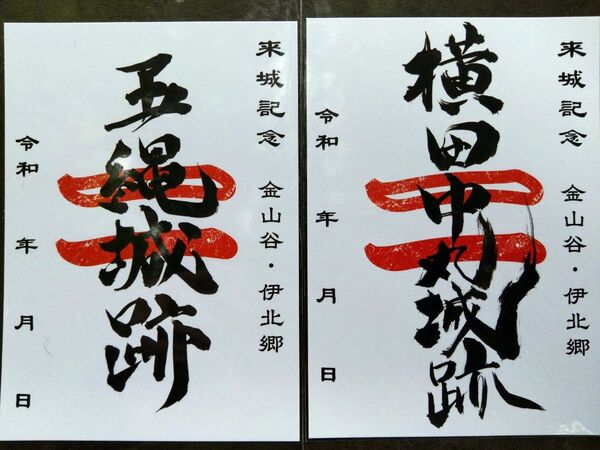 来城記念 金山谷・伊北郷
横田中丸城跡
令和 年 月 日
来城記念 金山谷・伊北郷
五縄城跡
令和 年 月 日